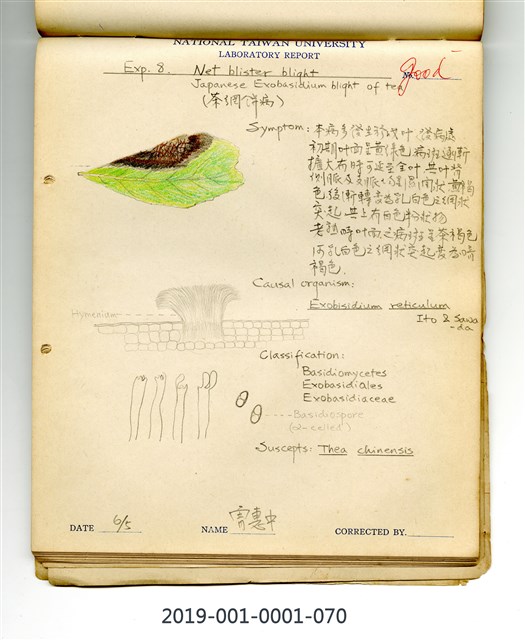 NATIONAL TAIWAN UNIVERSITY
LABORATORY REPORT
Exp. 8. Net blister blight
good
Japanese Exobasidium blight of tea
(茶網餅病)
Symptom: 本病多發生於茶叶,
初期叶面呈黃綠色病斑逐漸
擴大有時可達至全叶
色後漸轉變為乳白色之網狀
突起其上有白色粉狀物
老熟時叶面之病斑呈茶褐色
而乳白色之網狀突起變為暗
褐色.
Causal organism:
Exobisidium reticulum
Ito & Sawa
-da
Hymenium
Classification:
Basidiomycetes
Exobasidiales
Exobasidiaceae
Basidiospore
(α-celled)
Suscepts: Thea chinensis
DATE 6/5
NAME 惠中
CORRECTED BY.
2019-001-0001-070